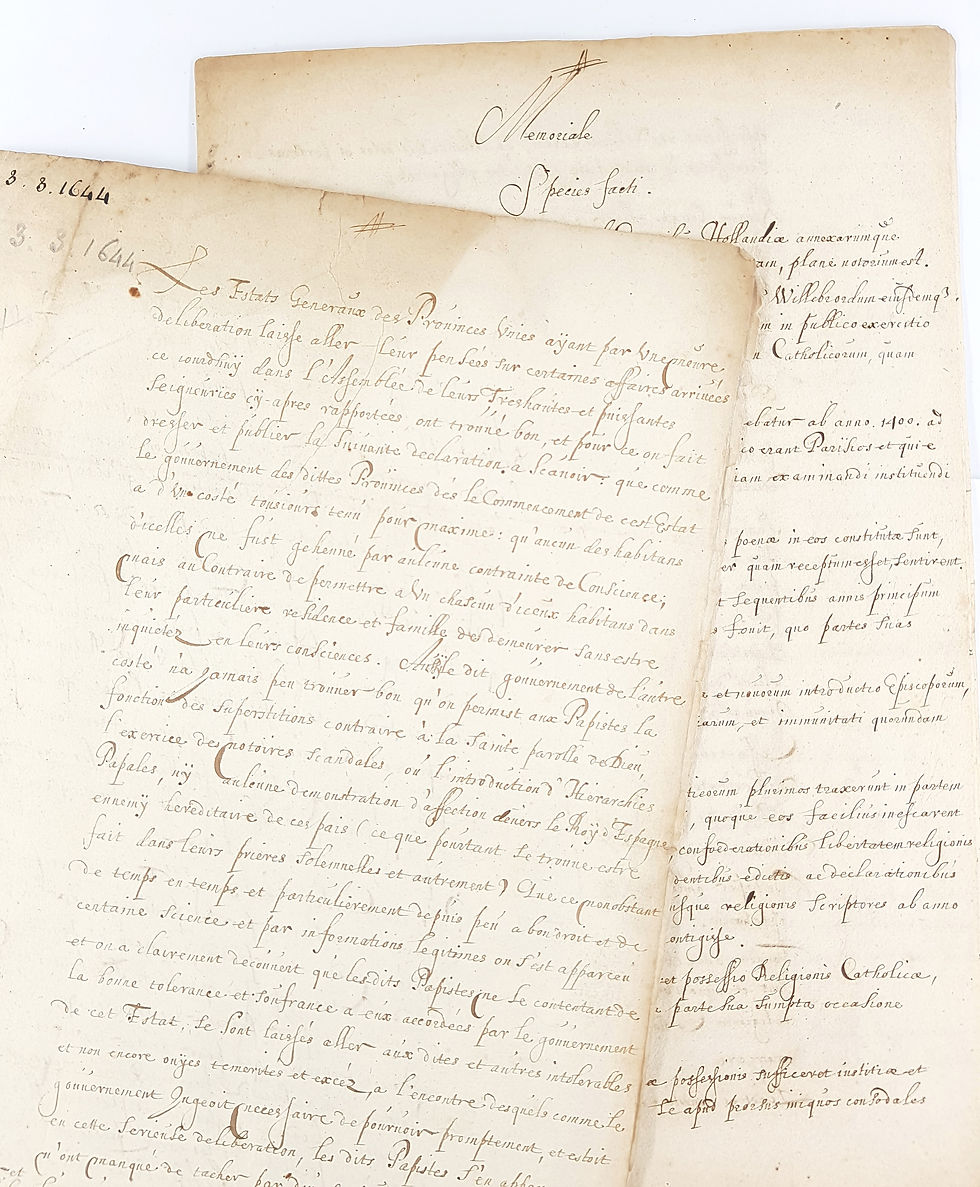 3. 8. 1644
3. 3. 1644
Les Estats Generaux des Prouinces Vnies ayant par vne meure
deliberation laisse aller leur pensées sur certaines affaires arriuées
ce iourdhuy dans l'Assemblée de leurs Treshautes et puissantes
Seigneuries cy-apres rapportées, ont trouué bon, et pour ce on fait
dresser et publier la suiuante declaration, a scauoir: que comme
le gouuernement des dittes Prouinces dés le Commencement de cest Estat
a d'Vn costé tousiours tenu pour maxime: qu'aucun des habitans
d'icelles ne fust gehenné par aulcune contrainte de Conscience;
mais au Contraire de permettre a Vn chascun d'iceux habitans dans
leur particuliere residence et famille, de demeurer sans estre
inquietez en leurs consciences. le dit gouuernement de l'autre
costé n'a jamais peu trouuer bon qu'on permist aux Papistes la
fonction des superstitions contraire à la sainte parolle de Dieu,
l'exercice de notoires scandales, ou l'introduction d'Hierarchies
Papales, ny aulcune demonstration d'affection enuers le Roy d'Espagne
ennemy hereditaire de ces païs (ce que pourtant se trouue estre
fait dans leurs prieres solemnelles et autrement) Que ce nonobstant
de temps en temps et particulierement depuis peu a bon droit et de
certaine science et par informations legitimes on s'est apparceu
et on a clairement decouuert que lesdits Papistes ne se contentant de
la bonne tolerance et souffrance a eux accordées par le gouuernement
de cet Estat, se sont laissés aller aux dites et autres intolerables
et non encore ouyes temerites et excez, a l'encontre desquels comme le
gouuernement Jugeoit necessaire de pouruoir promptement, et estoit
en cette serieuse deliberation, les dits Papistes s'en
n'ont manqué de tacher par
Memoriale
Species facti.
Hollandiæ annexarumque
am, planè notorium est.
Willebrordum eiusdemq3.
m in publico exercitio
n Catholicorum, quam
ebatur ab anno. 1400. ad
co erant Parishos et qui e
iam examinandi instituendi
poenæ in eos constitutæ sunt,
er quam receptum esset, sentirent.
t sequentibus annis principum
fouit, quo partes suas
et nouorum introductio Episcoporum,
iarum, et immunitati quorundam
ticorum plurimos traxerunt in partem
, quoque eos facilius inescarent
confoederationibus libertatem religionis
dentibus edictis ac declarationibus
usque religionis scriptores ab anno
ontigisse.
et possessio Religionis Catholicæ,
parte sua sumpta occasione
æ possessionis sufficeret institiæ et
se apud prorsus iniquos consodales